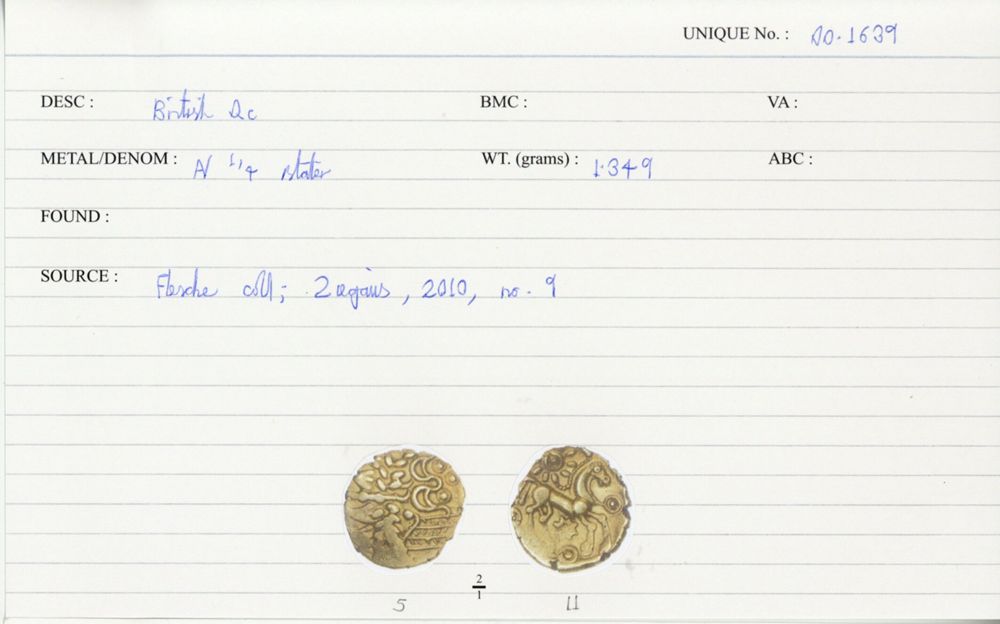 UNIQUE No. : 10.1639
DESC : British Qc BMC : VA :
METAL/DENOM : A/ 1/4 stater WT. (grams) : 1.349 ABC :
FOUND :
SOURCE : Flesche coll; , 2010, no. 9
2
1
5 11